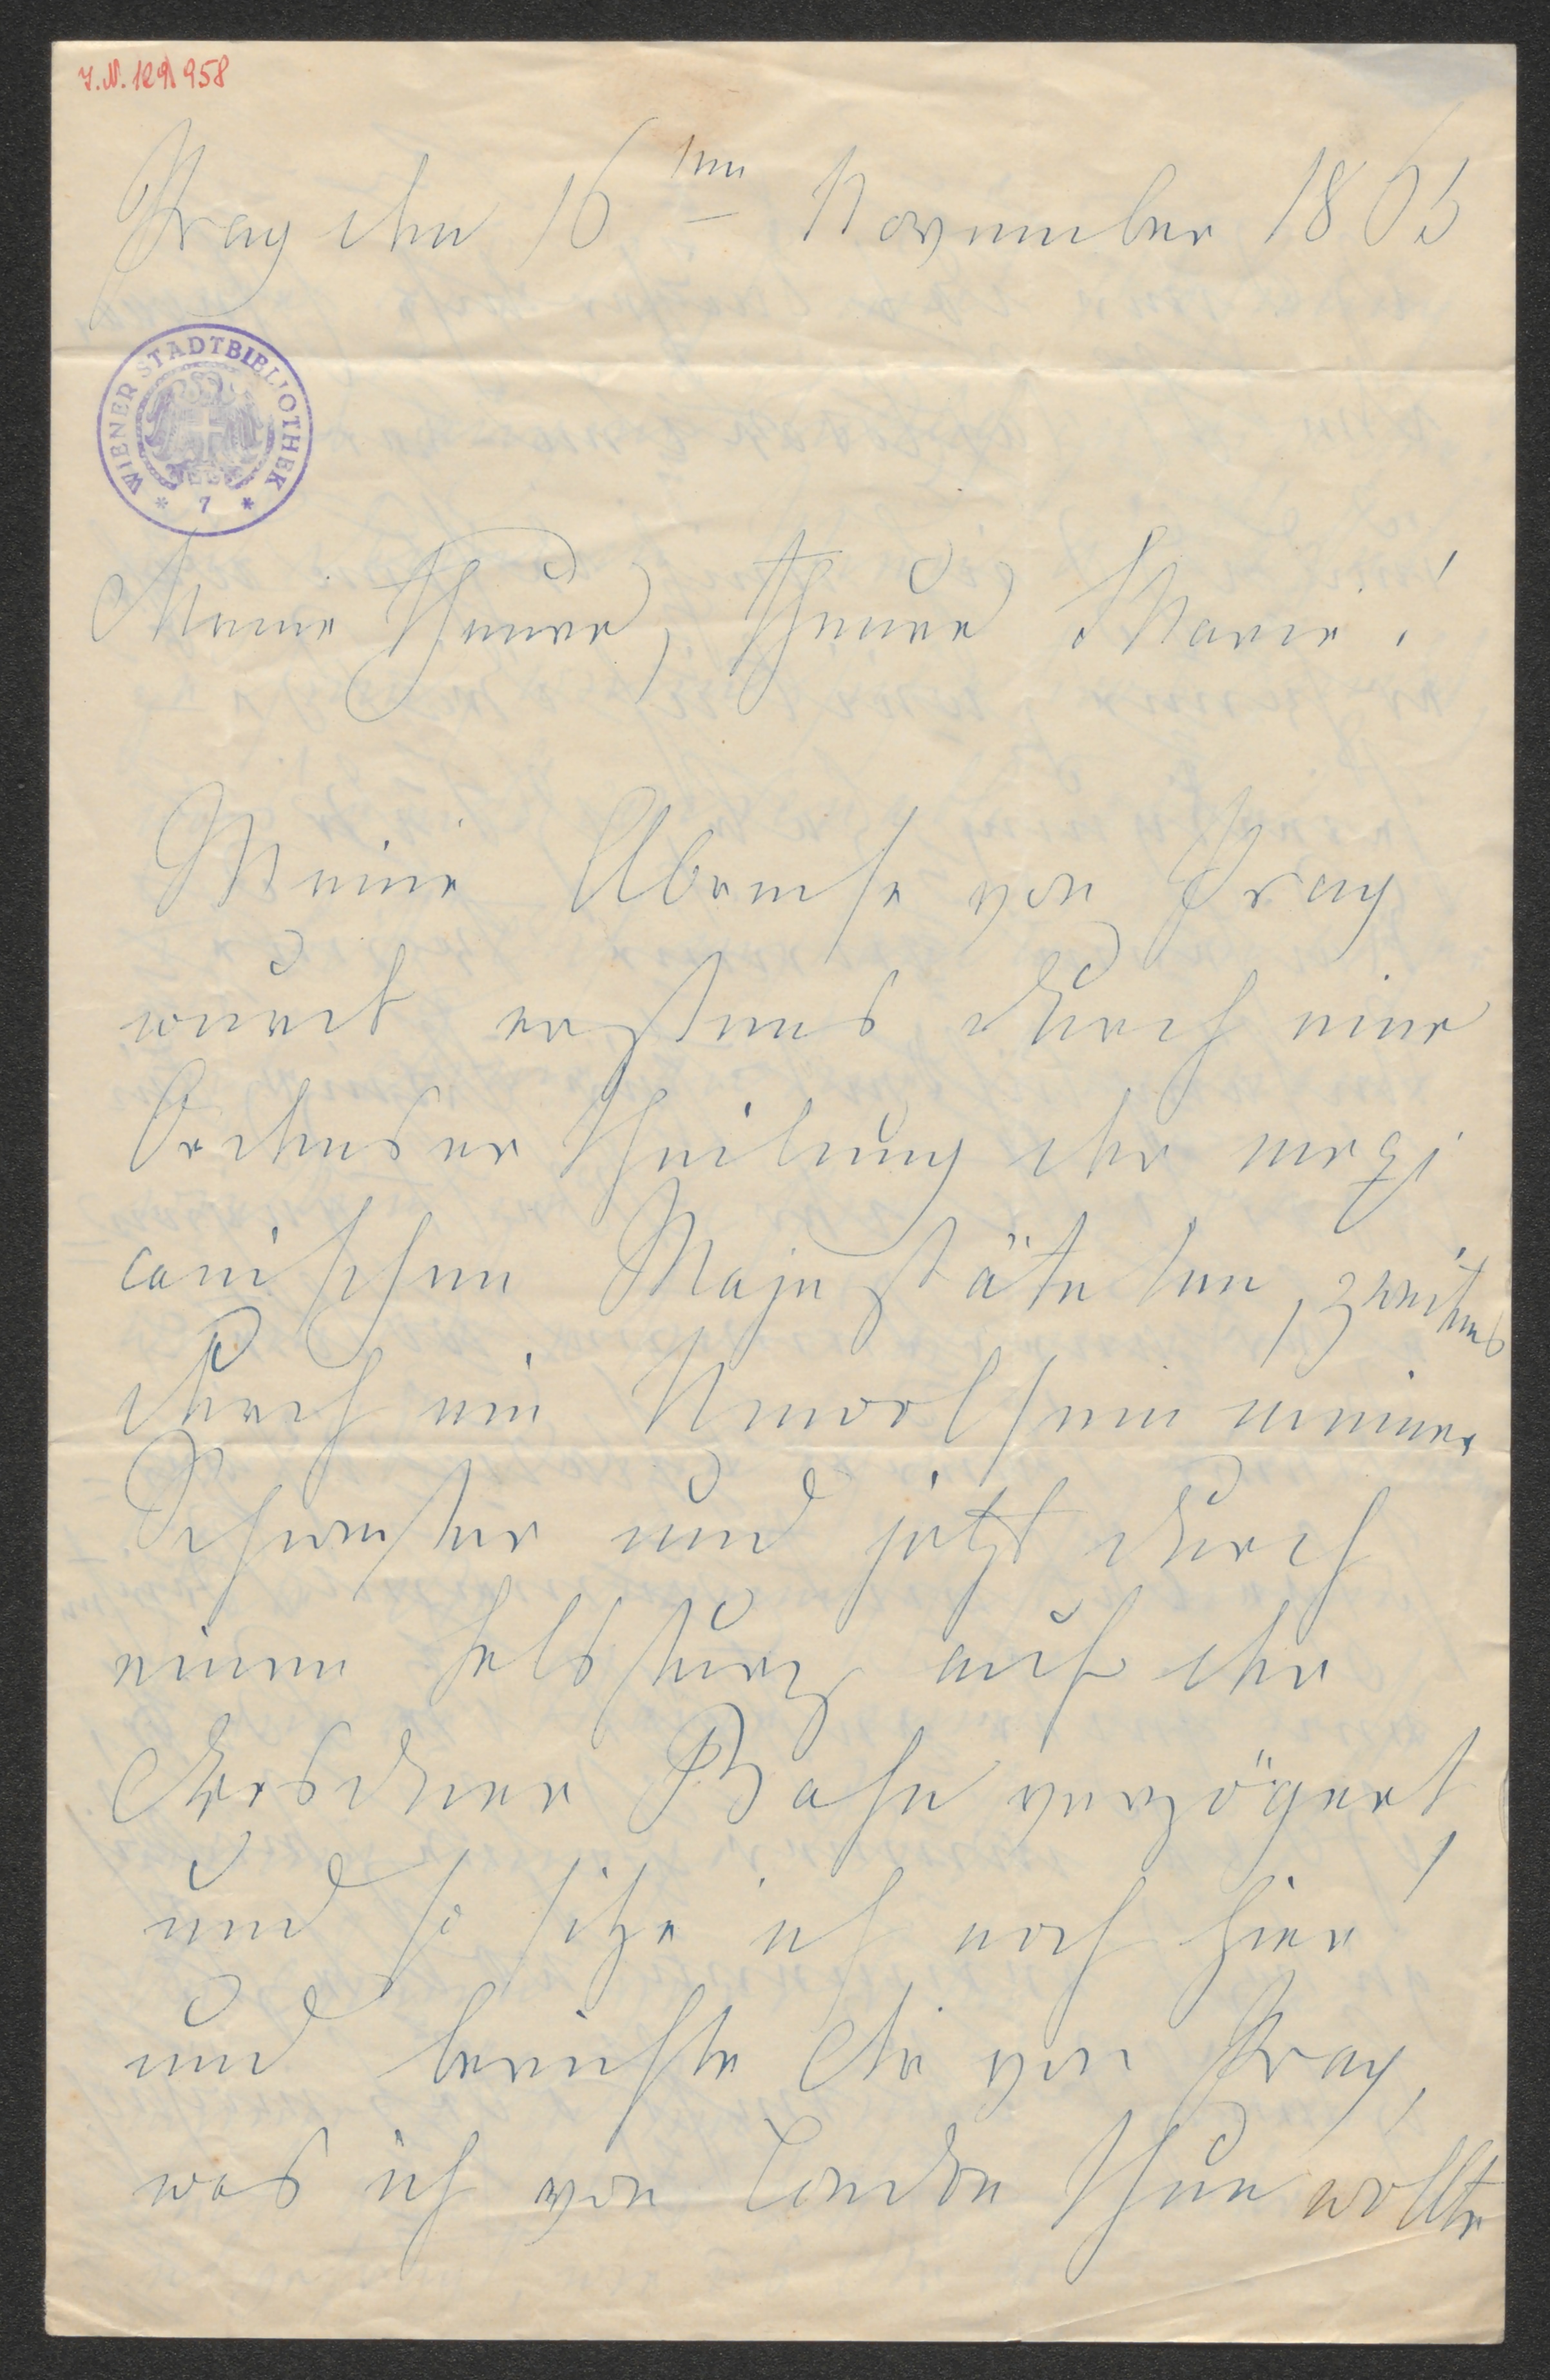 I.N. 129958
Prag den 16ten November 1865
WIENER STADTBIBLIOTHEK
* 7 *
Meine theure, theure Marie!
Meine Abreise von Prag
wurd erstens durch eine
Ordensver theilung der mexi
canischen Majestäten, zweitens
durch ein Unwolsein meiner
Schwester und jetzt durch
einen Felssturz auf der
Dresdner Bahn verzögert,
und so sitze ich noch hier
und berichte Dir von Prag,
was ich von London thun wollte